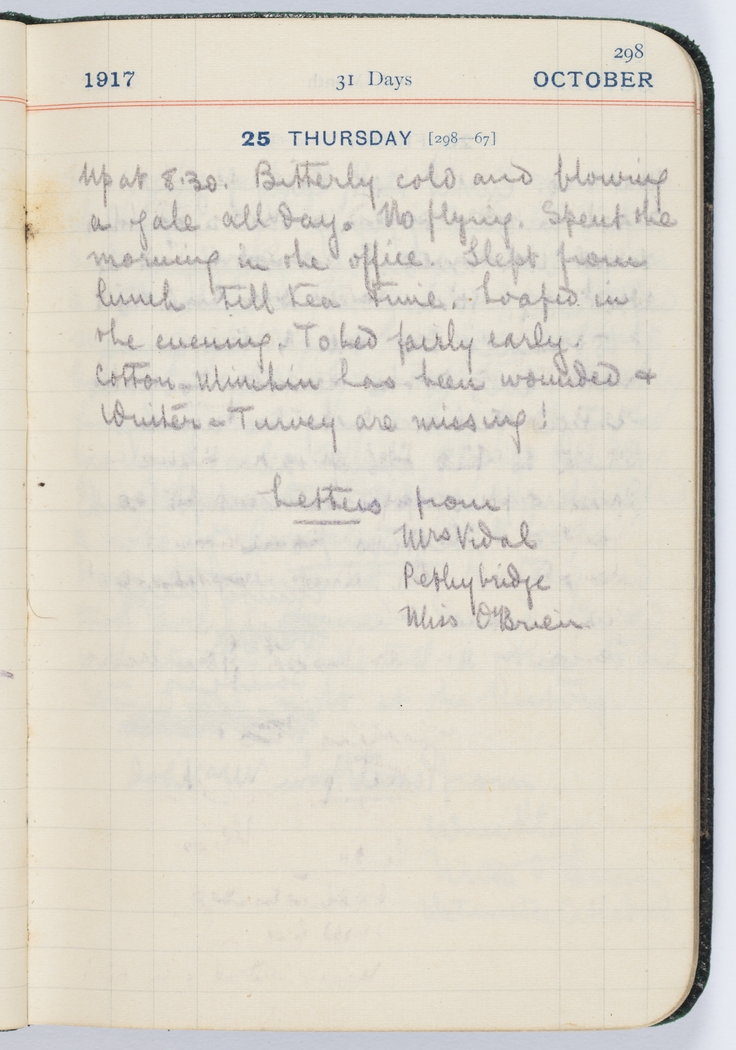 298
1917 31 Days OCTOBER
25 THURSDAY [298—67]
Up at 8.30. Bitterly cold and blowing
a gale all day. No flying. Spent the
morning in the office. Slept from
lunch till tea time. Loafed in
the evening. To bed fairly early.
Cotton-Minchin has been wounded &
Winter & Turvey are missing!
Letters from
Mrs Vidal
Pethybridge
Miss O'Brien